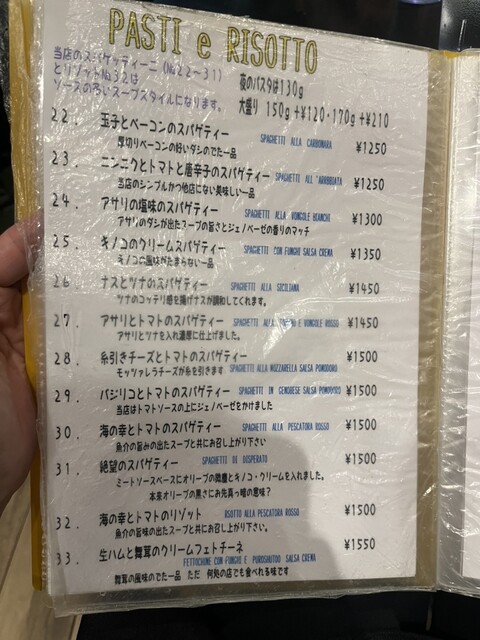 PASTI e RISOTTO
当店のスパゲッティーニ (No22~31)
とリゾットNo32は
ソースの多いスープスタイルになります。
夜のパスタは130g
大盛り 150g +¥120・170g +¥210
22. 玉子とベーコンのスパゲティー SPAGHETTI ALLA CARBONARA ¥1250
厚切りベーコンの好いダシのでた一品
23. ニンニクとトマトと唐辛子のスパゲティー SPAGHETTI ALL'ARRBBIATA ¥1250
当店のシンプルかつ他店にない美味しい一品
24. アサリの塩味のスパゲティー SPAGHETTI ALLA VONGOLE BIANCHI ¥1300
アサリのダシが出たスープの旨さとジェノベーゼの香りのマッチ
25. キノコのクリームスパゲティー SPAGHETTI CON FUNGHI SALSA CREMA ¥1350
キノコの風味がたまらない一品
26. ナスとツナのスパゲティー SPAGHETTI ALLA SICILIANA ¥1450
ツナのコッテリ感を揚げナスが調和してくれます。
27. アサリとトマトのスパゲティー SPAGHETTI ALLA E VONGOLE ROSSO ¥1450
アサリとツナを入れ濃厚に仕上げました。
28. 糸引きチーズとトマトのスパゲティー ¥1500
モッツァレラチーズが糸を引きます SPAGHETTI ALLA MOZZARELLA SALSA POMODORO
29. バジリコとトマトのスパゲティー SPAGHETTI IN GENOBESE SALSA POMODORO ¥1500
当店はトマトソースの上にジェノベーゼをかけました
30. 海の幸とトマトのスパゲティー SPAGHETTI ALLA PESCATORA ROSSO ¥1500
魚介の旨みの出たスープと共にお召し上がり下さい
31. 絶望のスパゲティー SPAGHETTI DI DISPERATO ¥1500
ミートソースベースにオリーブの微塵とキノコ・クリームを入れました。
本来オリーブの黒さにお先真っ暗の意味?
32. 海の幸とトマトのリゾット RISOTTO ALLA PESCATORA ROSSO ¥1500
魚介の旨味の出たスープと共にお召し上がり下さい。
33. 生ハムと舞茸のクリームフェトチーネ ¥1550
FETTOCHINE CON FUNGHI E PUROSHUTOO SALSA CREMA
舞茸の風味のでた一品 ただ 何処の店でも食べれる味です